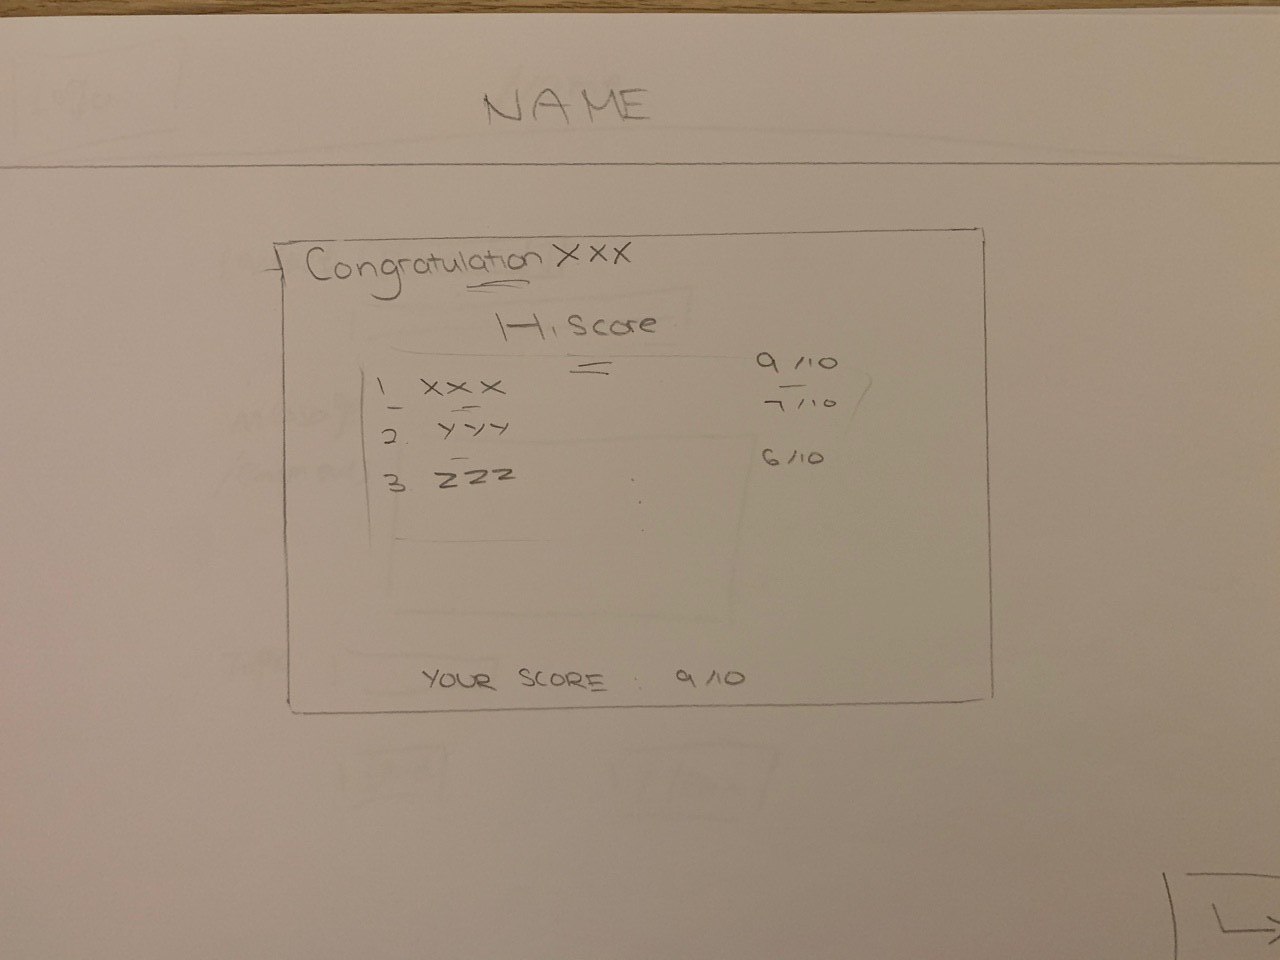 NAME
Congratulation XXX
Hi score
1 XXX 9/10
2. YYY 7/10
3. ZZZ 6/10
YOUR SCORE : 9/10